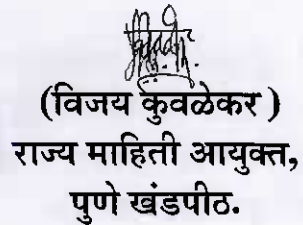 (विजय कुवळेकर)
राज्य माहिती आयुक्त,
पुणे खंडपीठ.